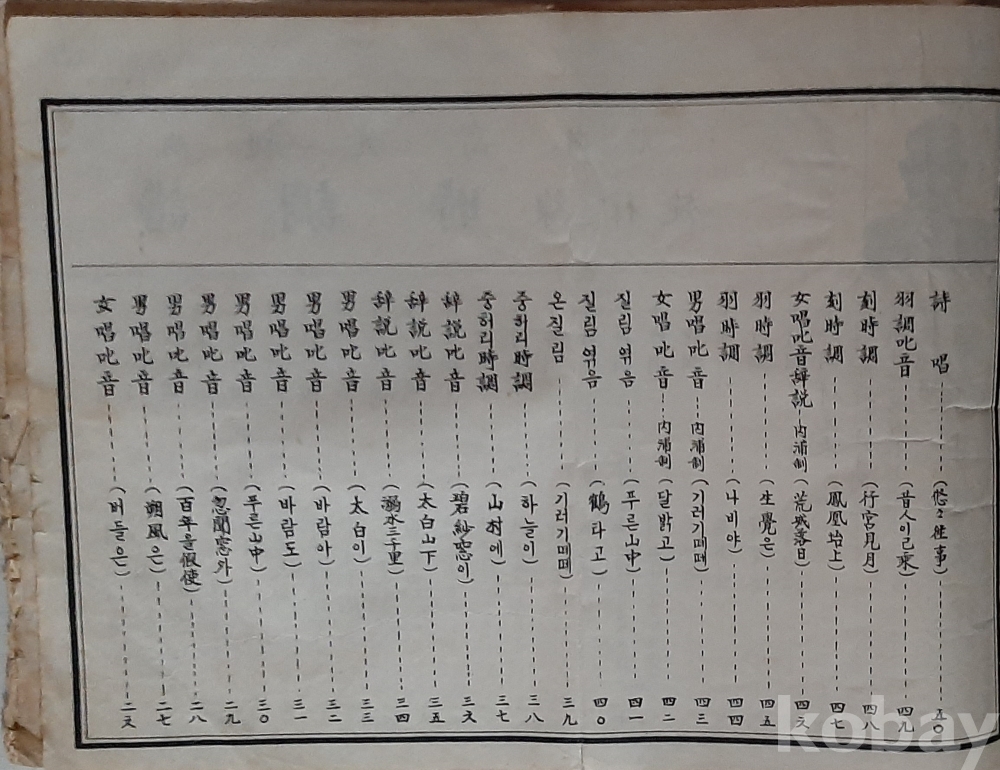 女唱叱音 (버들은) 二六
男唱叱音 (朔風은) 二七
男唱叱音 (百年을假使) 二八
男唱叱音 (忽聞窓外) 二九
男唱叱音 (푸른山中) 三〇
男唱叱音 (바람도) 三一
男唱叱音 (바람아) 三二
男唱叱音 (太白이) 三三
辞說叱音 (溺水三千里) 三四
辞說叱音 (太白山下) 三五
辞說叱音 (碧紗窓이) 三六
중허리時調 (山村에) 三七
중허리時調 (하늘이) 三八
온질림 (기러기떼떼) 三九
질림엮음 (鶴타고) 四〇
질림엮음 (푸른山中) 四一
女唱叱音 內浦制 (달밝고) 四二
男唱叱音 內浦制 (기러기떼떼) 四三
羽時調 (나비야) 四四
羽時調 (生覺은) 四五
女唱叱音辞說 內浦制 (荒城落日) 四六
刻時調 (鳳凰坮上) 四七
刻時調 (行宮見月) 四八
羽調叱音 (昔人이己乘) 四九
詩唱 (悠々徃事) 五〇
kobay